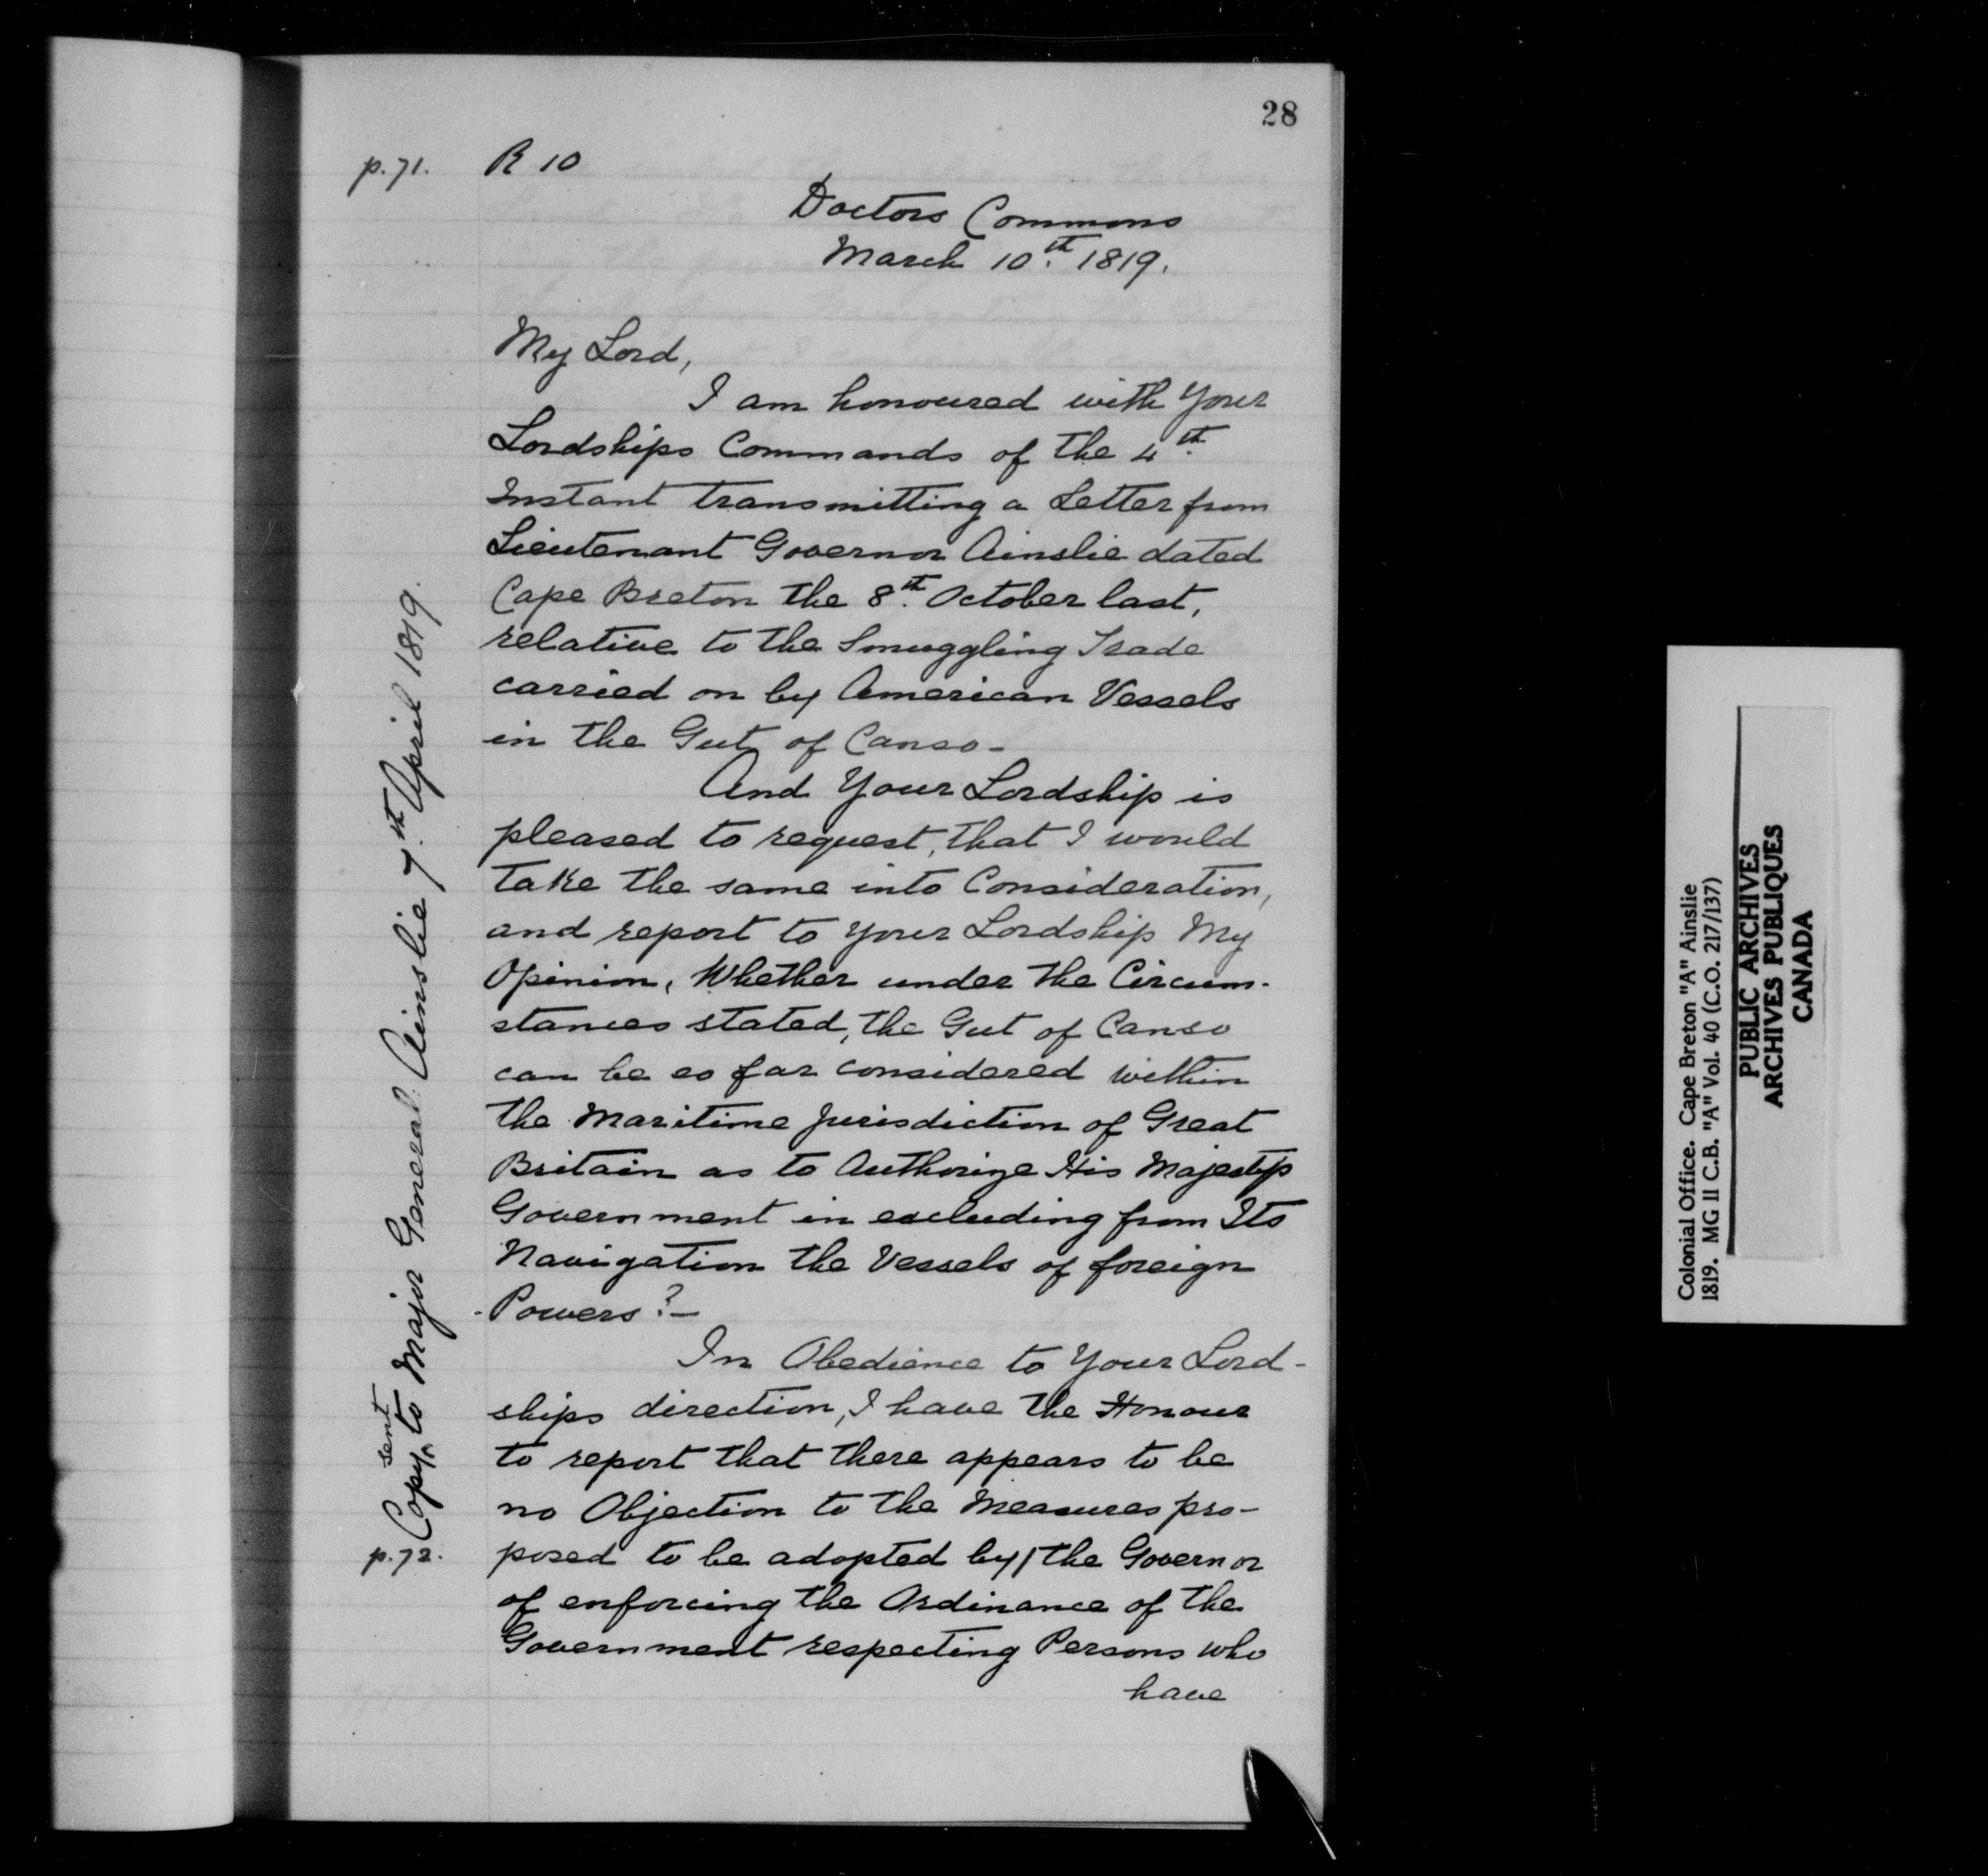 28
p.71. R 10
Doctors Commons
March 10th. 1819.
My Lord,
I am honoured with Your
Lordships Commands of the 4th.
Instant transmitting a Letter from
Lieutenant Governor Ainslie dated
Cape Breton the 8th. October last,
relative to the Smuggling Trade
carried on by American Vessels
in the Gut of Canso-
And Your Lordship is
pleased to request, that I would
take the same into Consideration,
and report to your Lordship My
Opinion, Whether under the Circum-
stances stated, the Gut of Canso
can be so far considered within
the Maritime Jurisdiction of Great
Britain as to Authorize His Majestys
Government in excluding from Its
Navigation the Vessels of foreign
Powers?-
In Obedience to Your Lord-
ships direction, I have the Honour
to report that there appears to be
no Objection to the Measures pro-
p.72. posed to be adopted by/the Governor
of enforcing the Ordinance of the
Government respecting Persons who
have
Copy sent to Major General Ainslie 7th. April 1819.
Colonial Office. Cape Breton "A" Ainslie
1819. MG 11 C.B. "A" Vol. 40 (C.O. 217/137)
PUBLIC ARCHIVES
ARCHIVES PUBLIQUES
CANADA